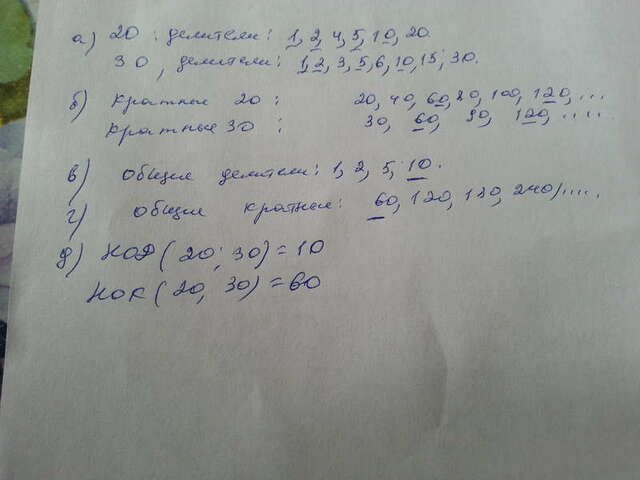 а) 20 : делители: 1, 2, 4, 5, 10, 20.
30, делители: 1, 2, 3, 5, 6, 10, 15, 30.
б) Кратные 20 : 20, 40, 60, 80, 100, 120, ...
Кратные 30 : 30, 60, 90, 120, .....
в) Общие делители: 1, 2, 5, 10.
г) Общие кратные: 60, 120, 180, 240, ....
д) НОД (20; 30) = 10
НОК (20, 30) = 60